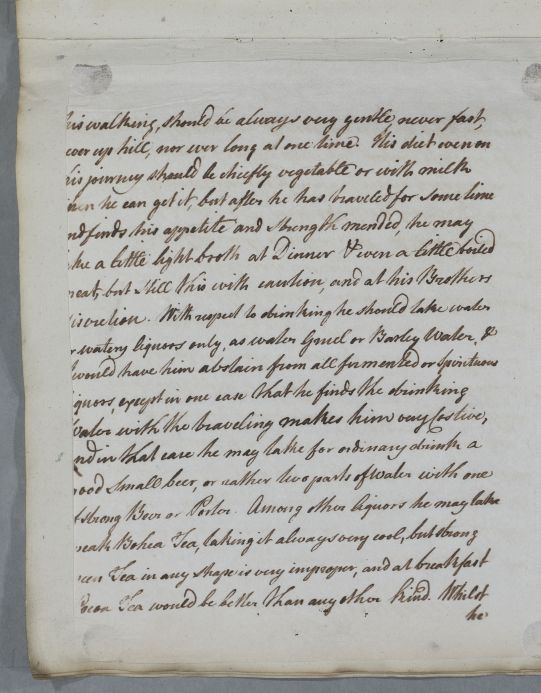 his walking, should be always very gentle never fast,
never up hill, nor ever long at one time. His diet even on
his journey should be chiefly vegetable or with milk
when he can get it, but after he has traveled for some time
and finds his appetite and strength mended, he may
take a little light broth at Dinner & even a little boiled
meat, but still this with caution, and at his Brothers
discretion. With respect to drinking he should take water
or watery liquors only, as water Gruel or Barley Water, &
I would have him abstain from all fermented or Spirituous
liquors, except in one case that he finds the drinking
Water with the traveling makes him very Costive,
and in that case he may take for ordinary drink a
good small beer, or rather two parts of water with one
of strong Beer or Porter. Among other liquors he may take
weak Bohea Tea, taking it always very cool, but strong
green Tea in any shape is very improper, and at breakfast
Cocoa Tea would be better than any other kind. Whilst
he